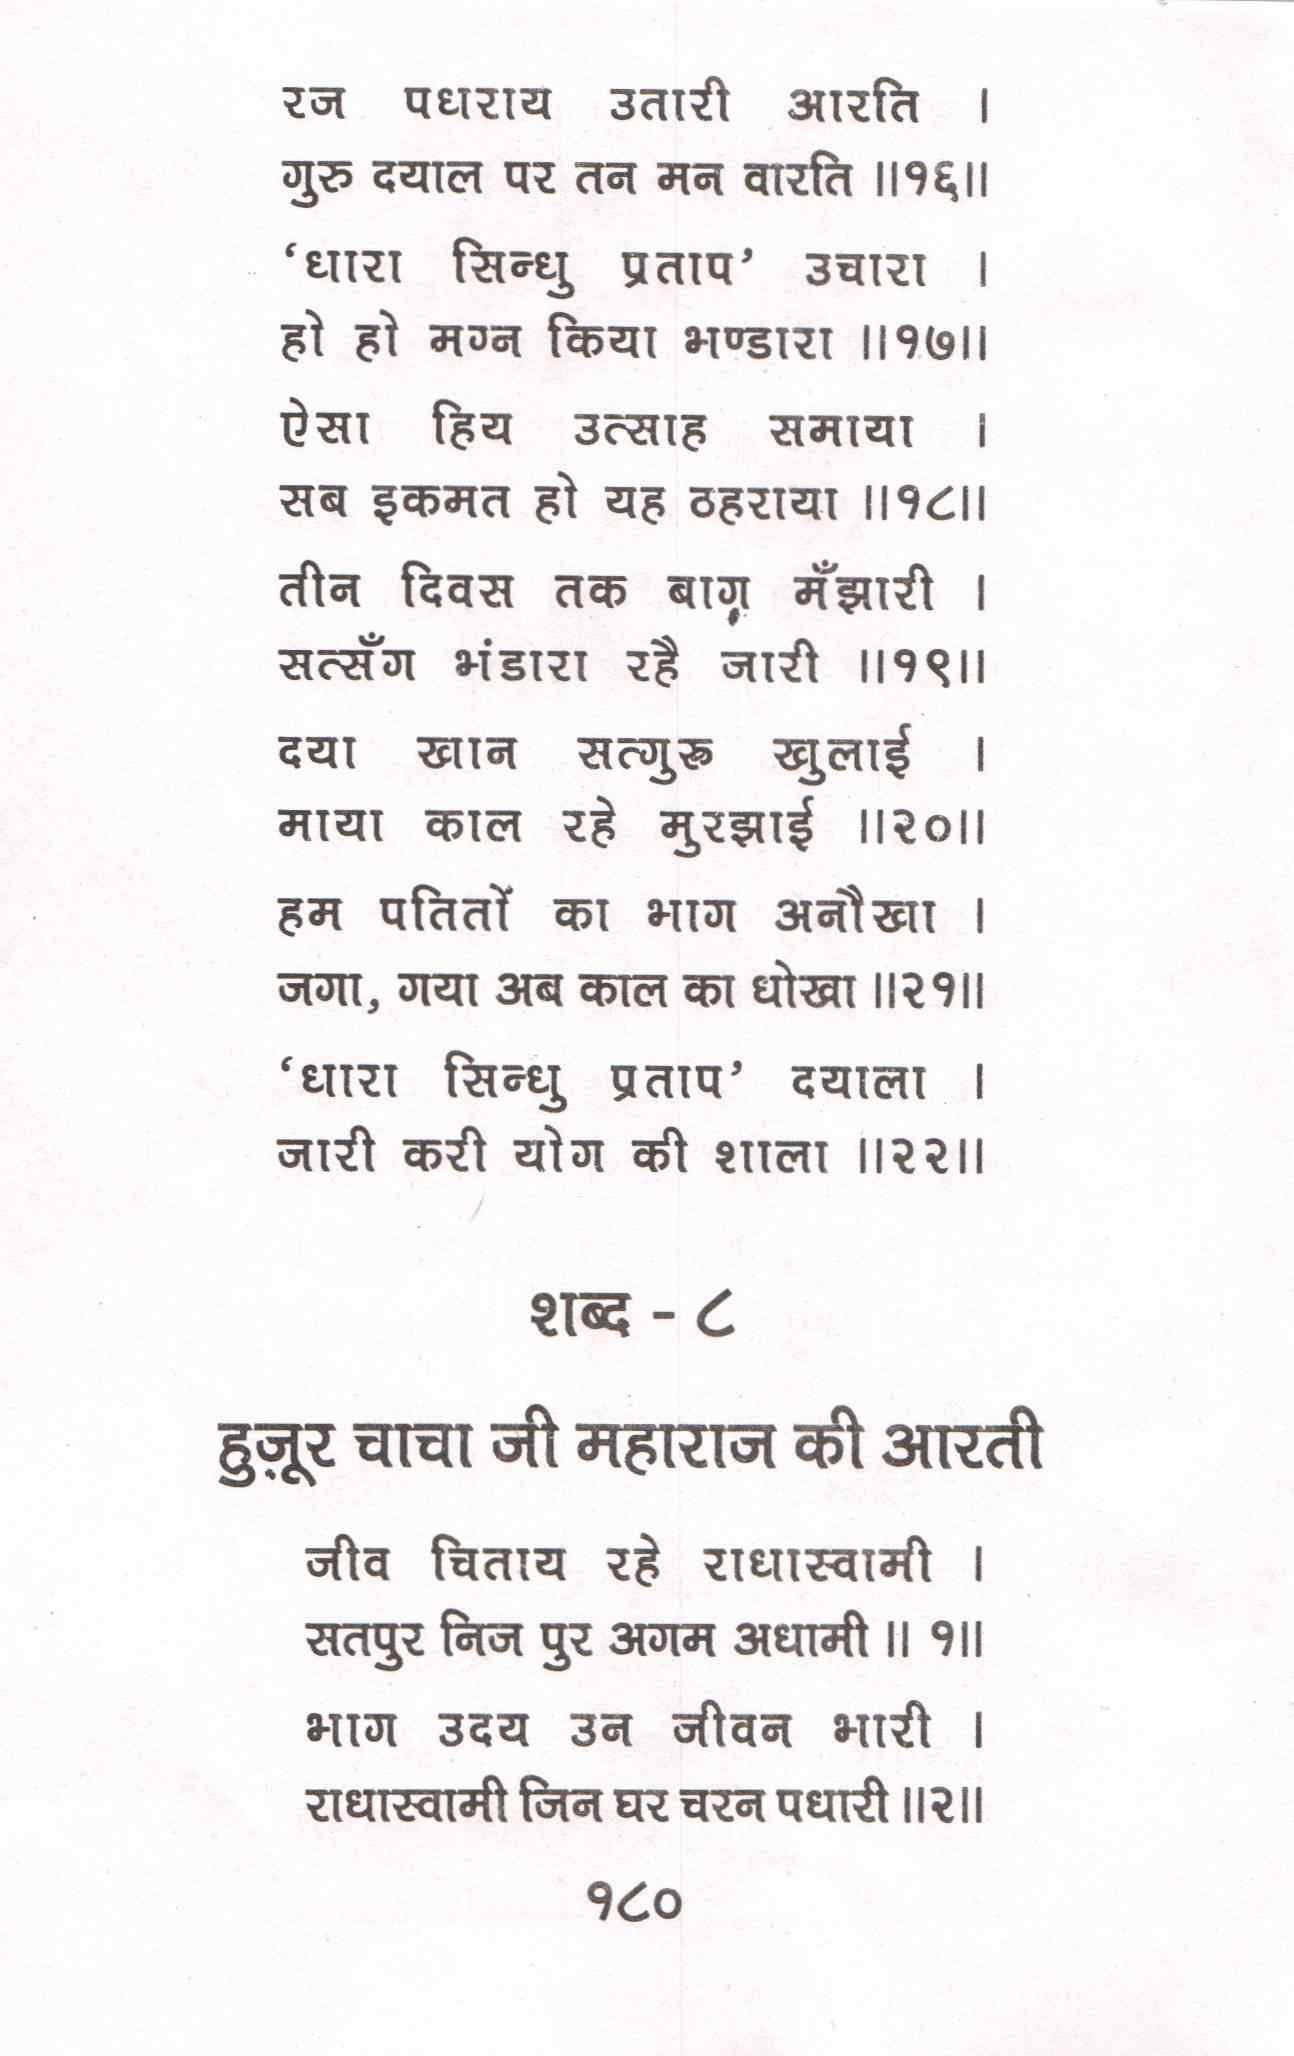 रज पधराय उतारी आरति ।
गुरु दयाल पर तन मन वारति ॥१६॥
‘धारा सिन्धु प्रताप’ उचारा ।
हो हो मग्न किया भण्डारा ॥१७॥
ऐसा हिय उत्साह समाया ।
सब इकमत हो यह ठहराया ॥१८॥
तीन दिवस तक बाग़ मँझारी ।
सत्सँग भंडारा रहै जारी ॥१९॥
दया खान सत्गुरू खुलाई ।
माया काल रहे मुरझाई ॥२०॥
हम पतितोँ का भाग अनौखा ।
जगा, गया अब काल का धोखा ॥२१॥
‘धारा सिन्धु प्रताप’ दयाला ।
जारी करी योग की शाला ॥२२॥
शब्द - ८
हुज़ूर चाचा जी महाराज की आरती
जीव चिताय रहे राधास्वामी ।
सतपुर निज पुर अगम अधामी ॥ १॥
भाग उदय उन जीवन भारी ।
राधास्वामी जिन घर चरन पधारी ॥२॥
१८०